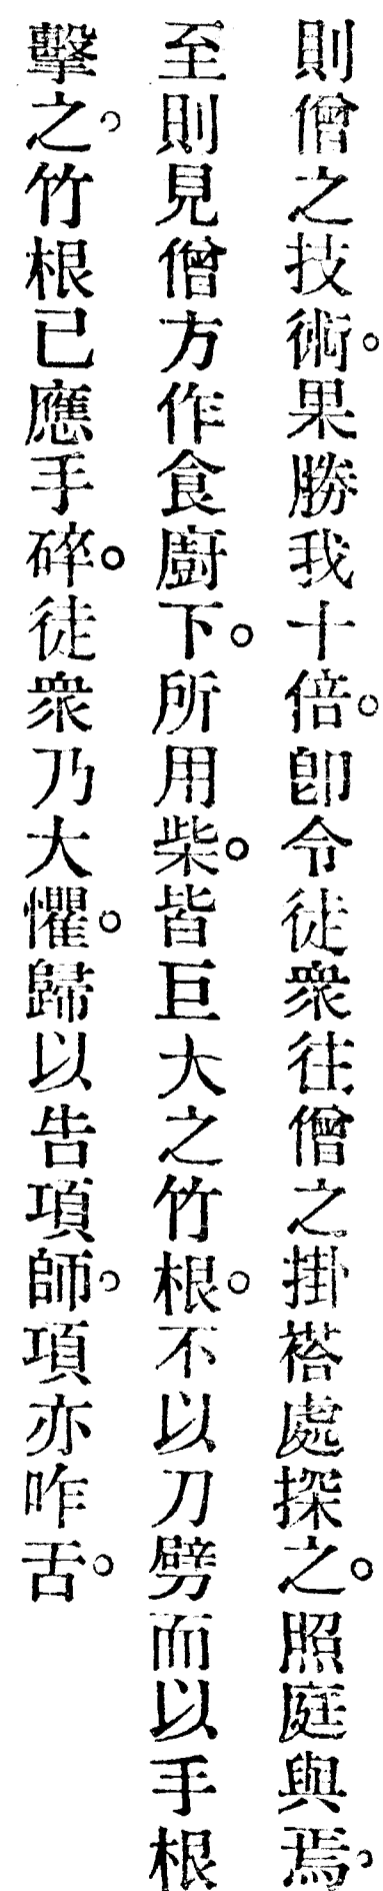 則僧之技術。果勝我十倍。卽令徒衆往僧之掛褡處探之。照庭與焉。
至則見僧方作食廚下。所用柴。皆巨大之竹根。不以刀劈而以手根
擊之。竹根已應手碎。徒衆乃大懼。歸以告項師。項亦咋舌。